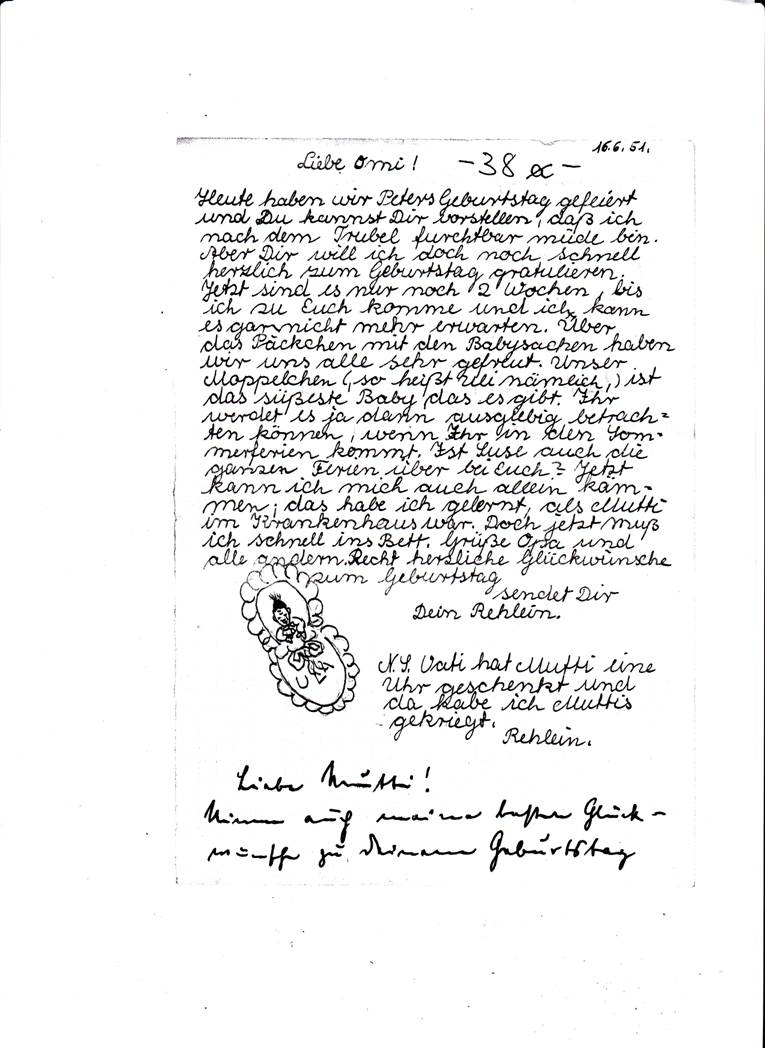 16.6.51.
Liebe Omi! -38 -
Heute haben wir Peters Geburtstag gefeiert
und Du kannst Dir vorstellen, daß ich
nach dem Trubel furchtbar müde bin.
Aber Dir will ich doch noch schnell
herzlich zum Geburtstag gratulieren.
Jetzt sind es nur noch 2 Wochen, bis
ich zu Euch komme und ich kann
es garnicht mehr erwarten. Über
das Päckchen mit den Babysachen haben
wir uns alle sehr gefreut. Unser
Moppelchen (so heißt nämlich,) ist
das süßeste Baby das es gibt. Ihr
werdet es ja dann ausgiebig betrach=
ten können, wenn Ihr in den Som-
merferien kommt. Ist Suse auch die
ganzen Ferien über bei Euch? Jetzt
kann ich mich auch allein käm-
men; das habe ich gelernt, als Mutti
im Krankenhaus war. Doch jetzt muß
ich schnell ins Bett. Grüße Opa und
alle andern. Recht herzliche Glückwünsche
zum Geburtstag
sendet Dir
Dein Rehlein.
N.S. Vati hat Mutti eine
Uhr geschenkt und
da habe ich Muttis
gekriegt.
Rehlein.
Liebe Mutti!
Nimm auch meine besten Glück-
wünsche zu Deinem Geburtstag